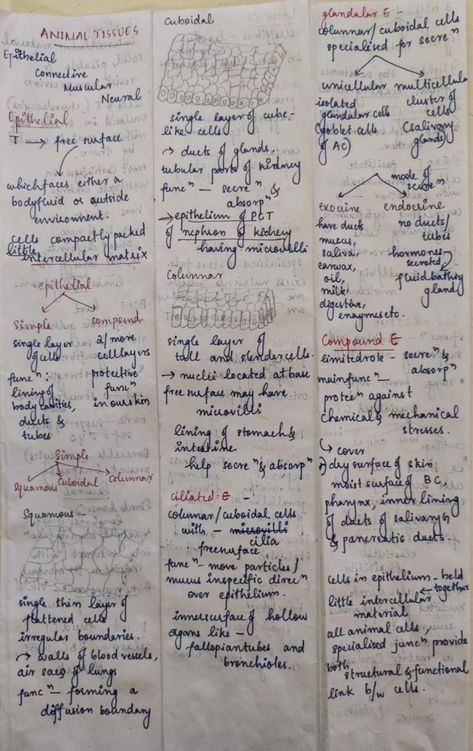 ANIMAL TISSUES
Epithelial
Connective
Muscular
Neural
Epithelial
T → free surface
which faces either a
bodyfluid or outside
environment.
Cells compactly packed
little intercellular matrix
epithelial
simple compound
single layer of cells
funcⁿ:
lining of
body cavities,
ducts &
tubes
2/more
cell layers
protective
funcⁿ
in our skin
Simple
Squamous Cuboidal Columnar
Squamous -
single thin layer of
flattened cells
irregular boundaries.
→ walls of blood vessels,
air sacs of lungs
funcⁿ - forming a
diffusion boundary
Cuboidal
single layer of cube-
like cells
→ ducts of glands.
tubular parts of kidney
funcⁿ - secreⁿ &
absorpⁿ
→ epithelium of PCT
of nephron of kidney
having microvilli
Columnar
single layer of
tall and slender cells.
→ nuclei located at base
free surface may have
microvilli
lining of stomach &
intestine
help secreⁿ & absorpⁿ
ciliated E -
columnar/cuboidal cells
with - microvilli
cilia
free surface
funcⁿ - move particles/
mucus in specific direcⁿ
over epithelium.
inner surface of hollow
organs like -
fallopian tubes and
bronchioles.
glandular E -
columnar/cuboidal cells
specialised for secreⁿ
unicellular multicellular
isolated
glandular cells
(goblet cells
of AC)
cluster of
cells
(salivary
glands)
mode of
secreⁿ
exocine endocrine
have ducts
mucus,
saliva,
earwax,
oil,
milk,
digestive,
enzymes etc.
no ducts/
tubes
hormones
secreted
fluid bathing
gland
Compound E
limited role - secreⁿ &
absorpⁿ
main funcⁿ -
proteⁿ against
chemical & mechanical
stresses.
→ cover
dry surface of skin
moist surface of BC,
pharynx, inner lining
of ducts of salivary G
& pancreatic ducts.
cells in epithelium - held
together
little intercellular
material
all animal cells,
specialised juncⁿ provide
both structural & functional
link b/w cells.